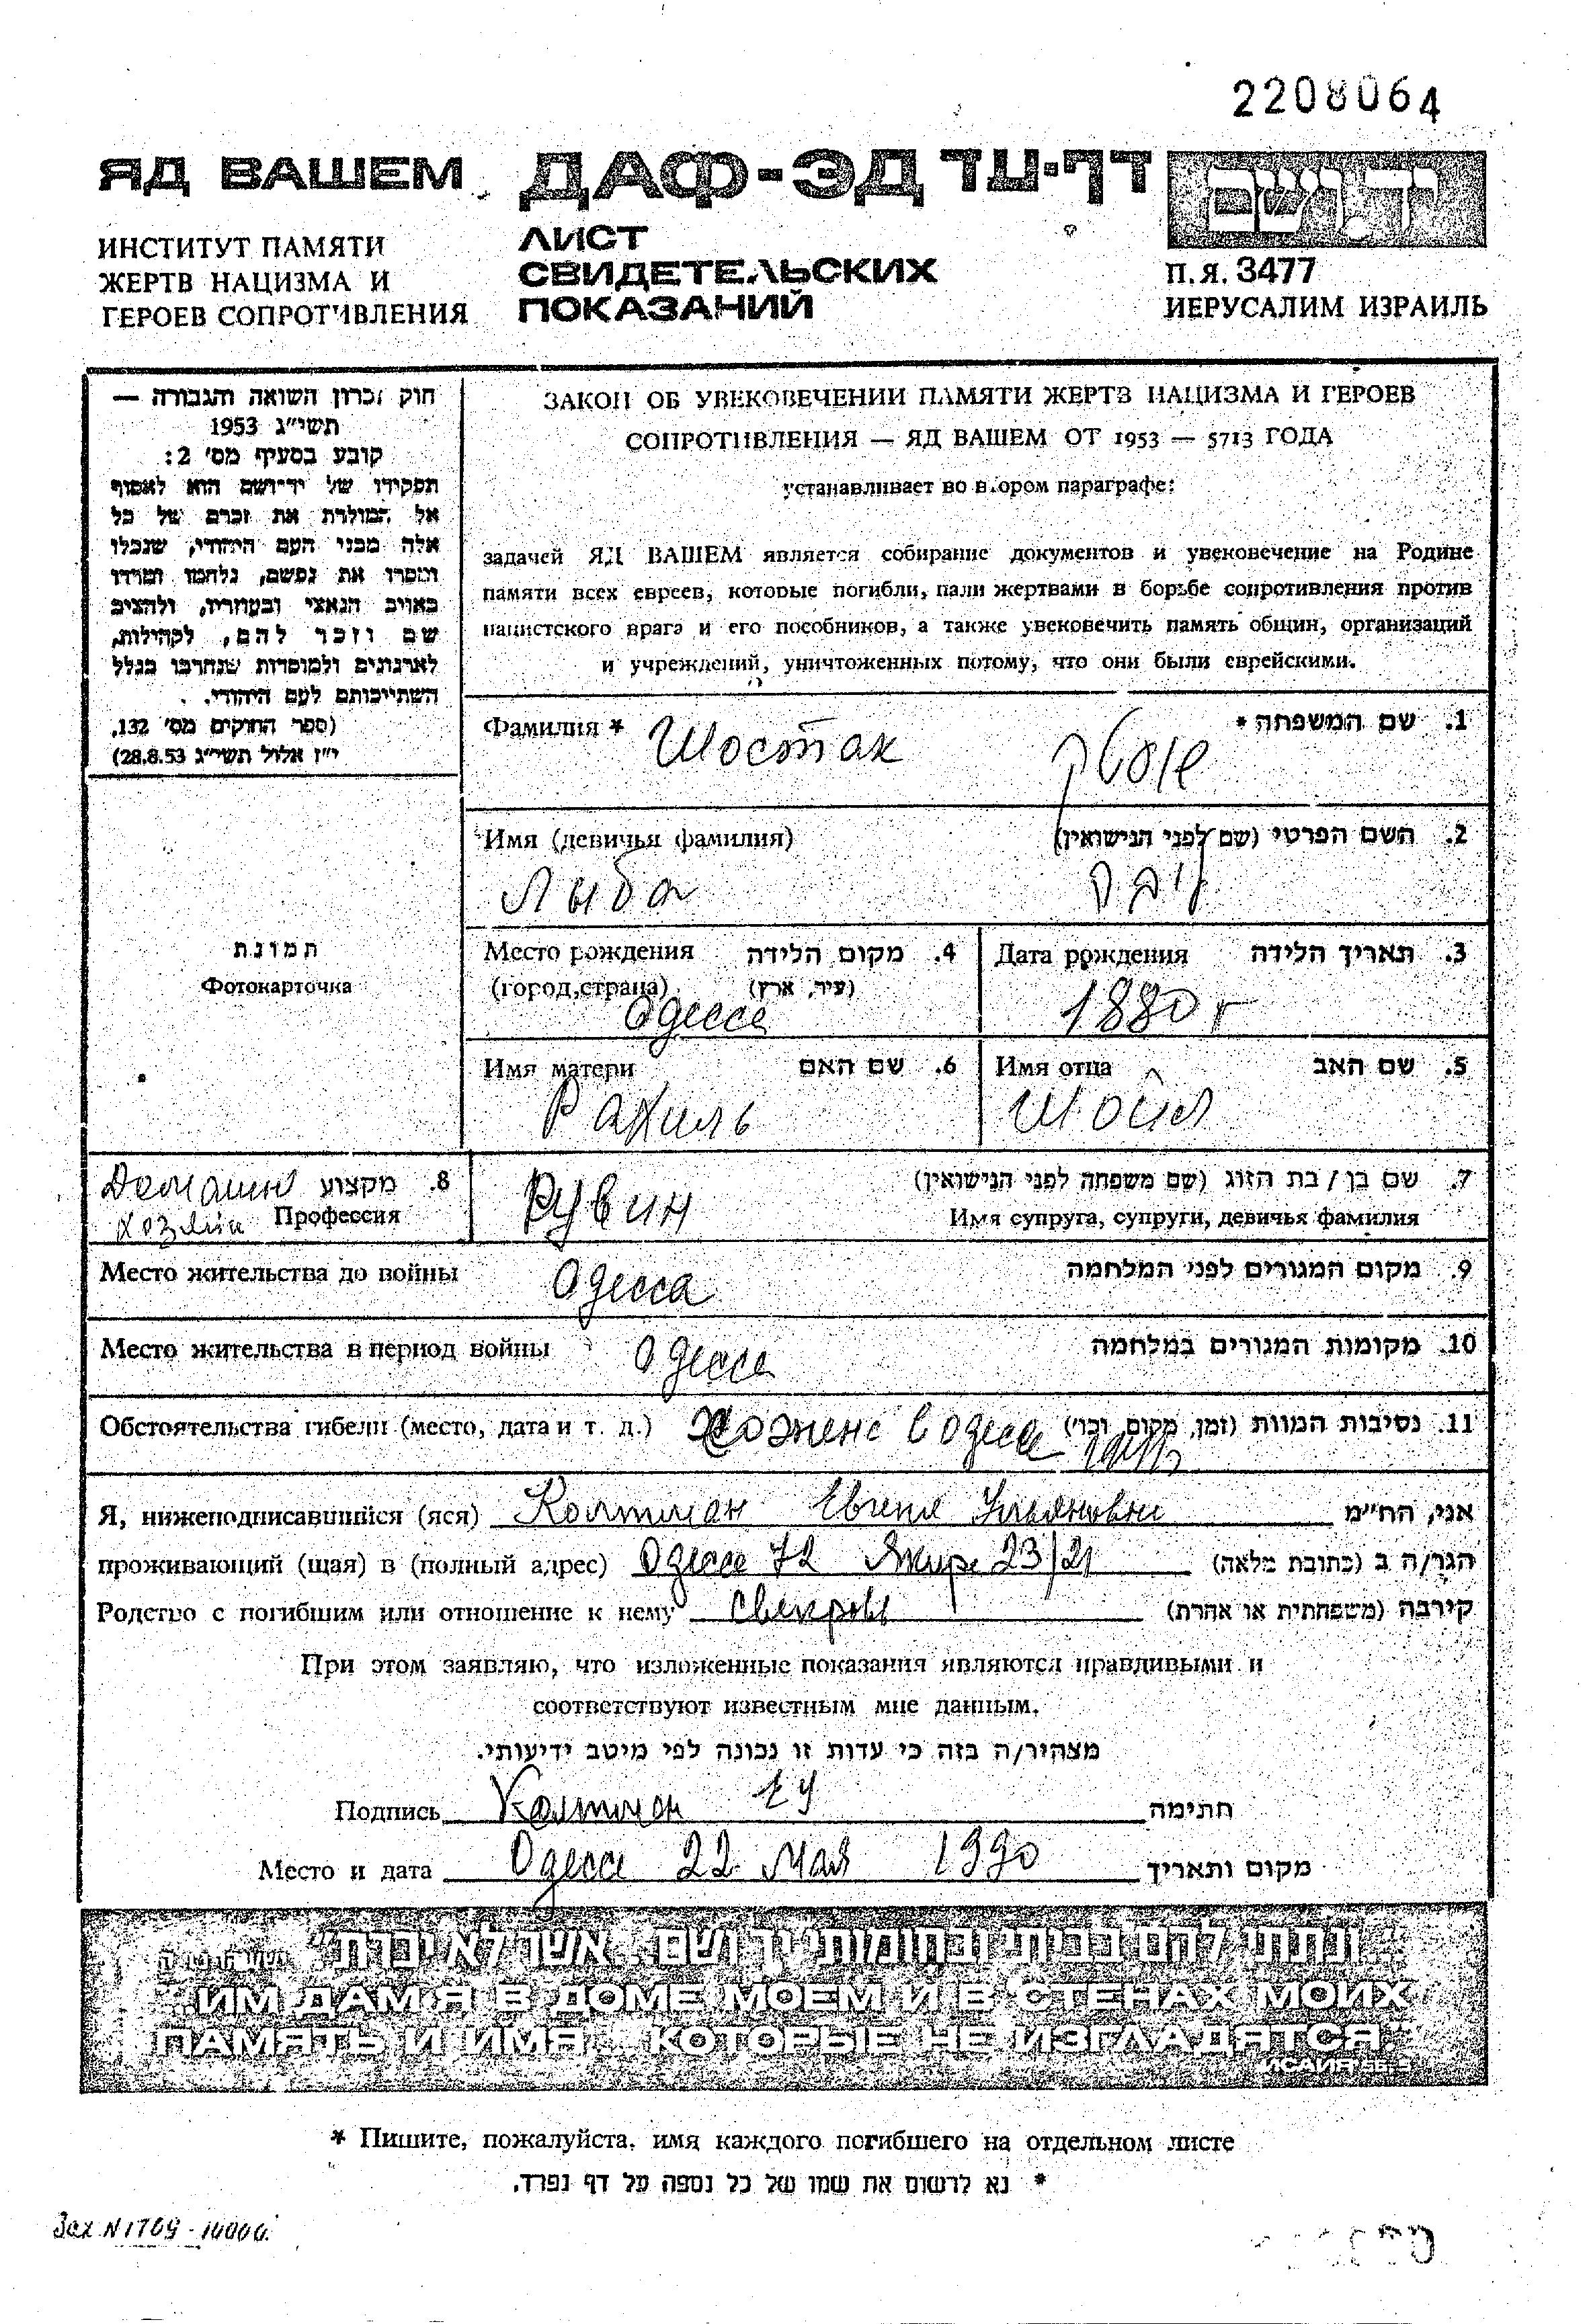 2208064
ЯД ВАШЕМ ДАФ-ЭД דף-עד יד ושם
ИНСТИТУТ ПАМЯТИ
ЖЕРТВ НАЦИЗМА И
ГЕРОЕВ СОПРОТИВЛЕНИЯ
ЛИСТ
СВИДЕТЕЛЬСКИХ
ПОКАЗАНИЙ
П.Я. 3477
ИЕРУСАЛИМ ИЗРАИЛЬ
חוק זכרון השואה והגבורה —
תשי"ג 1953
קובע בסעיף מס' 2:
תפקידו של יד־ושם הוא לאסוף
אל המולדת את זכרם של כל
אלה מבני העם היהודי, שנפלו
ומסרו את נפשם, נלחמו ומרדו
באויב הנאצי ובעוזריו, ולהציב
שם וזכר להם, לקהילות,
לארגונים ולמוסדות שנחרבו בגלל
השתייכותם לעם היהודי.
(ספר החוקים מס' 132,
י"ז אלול תשי"ג 28.8.53)
ЗАКОН ОБ УВЕКОВЕЧЕНИИ ПАМЯТИ ЖЕРТВ НАЦИЗМА И ГЕРОЕВ
СОПРОТИВЛЕНИЯ — ЯД ВАШЕМ ОТ 1953 — 5713 ГОДА
устанавливает во втором параграфе:
задачей ЯД ВАШЕМ является собирание документов и увековечение на Родине
памяти всех евреев, которые погибли, пали жертвами в борьбе сопротивления против
нацистского врага и его пособников, а также увековечить память общин, организаций
и учреждений, уничтоженных потому, что они были еврейскими.
Фамилия * Шостак 1. שם המשפחה *
שוסטק
Имя (девичья фамилия) 2. השם הפרטי (שם לפני הנישואין)
Лыба
תמונת
Фотокарточка
Место рождения 4. מקום הלידה Дата рождения 3. תאריך הלידה
(город,страна) (עיר, ארץ)
Одесса 1880 г
Имя матери 6. שם האם Имя отца 5. שם האב
Рахиль Шойл
Домашн 8. מקצוע
хозяйк Профессия
Рувин 7. שם בן / בת הזוג (שם משפחה לפני הנישואין)
Имя супруга, супруги, девичья фамилия
Место жительства до войны Одесса 9. מקום המגורים לפני המלחמה
Место жительства в период войны Одесса 10. מקומות המגורים במלחמה
Обстоятельства гибели (место, дата и т. д.) Сожжена в Одессе 11. נסיבות המוות (זמן, מקום, וכו')
Я, нижеподписавшийся (яся) Колтман Евгения Ульяновна אני, הח"מ
проживающий (щая) в (полный адрес) Одесса 72 Якира 23/21 הגר/ה ב (כתובת מלאה)
Родство с погибшим или отношение к нему Свекровь קירבה (משפחתית או אחרת)
При этом заявляю, что изложенные показания являются правдивыми и
соответствуют известным мне данным.
מצהיר/ה בזה כי עדות זו נכונה לפי מיטב ידיעותי.
Подпись Колтман ЕУ חתימה
Место и дата Одесса 22 Мая 1990 מקום ותאריך
"ונתתי להם בביתי ובחומותי יד ושם... אשר לא יכרת"
"...ИМ ДАМ Я В ДОМЕ МОЕМ И В СТЕНАХ МОИХ
ПАМЯТЬ И ИМЯ... КОТОРЫЕ НЕ ИЗГЛАДЯТСЯ."
ИСАЙЯ 56.5
* Пишите, пожалуйста, имя каждого погибшего на отдельном листе
* נא לרשום את שמו של כל נספה על דף נפרד.
Зак N1769 - 10000